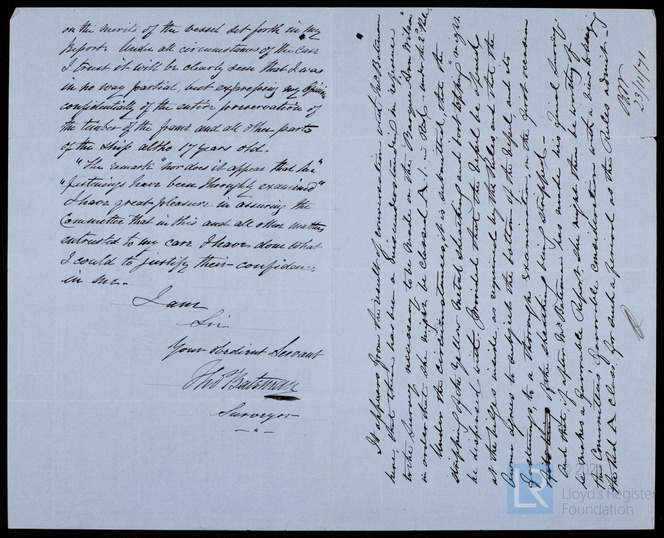 on the merits of the vessel set forth in my
Report. Under all circumstances of the Case
I trust it will be clearly seen that I was
in no way partial, but expressing my opinion
confidentially of the entire preservation of
the timber of the frame and all other parts
of the ship altho 17 years old.
"The remark" nor does it appear that her"
"fastenings have been throughly examined"
I have great pleasure in assuring the
Committee that in this and all other matters
entrusted to my care I have done what
I could to justify their confidence
in me.
I am
Sir
Your Obedient Servant
Thos Bateman
Surveyor
It appears from the result of communication with Mr Bateman
here, that there has been a misunderstanding in reference
to the Survey necessary to be made on the Barque "
in order that she might be Classed A.1. in Red, under the
Under the circumstances it is submitted, that the
stripping of the yellow metal sheathing and bolt stopping might
be dispensed with. Provided that the Vessel be
at the bilges inside as required by the Rules and that the
Owner agrees to subject the bottom of the Vessel & its
fastenings to a thorough examination, on the first occasion
of the sheathing being stripped.
And that, if after Mr Bateman has made his final survey
he makes a favorable Report, she might then be worthy of
the Committee's favorable consideration with a view to being
the Red A Class for such a period as the Rules admit
23/11/71
LR
© 202
Lloyd's Register
Foundation